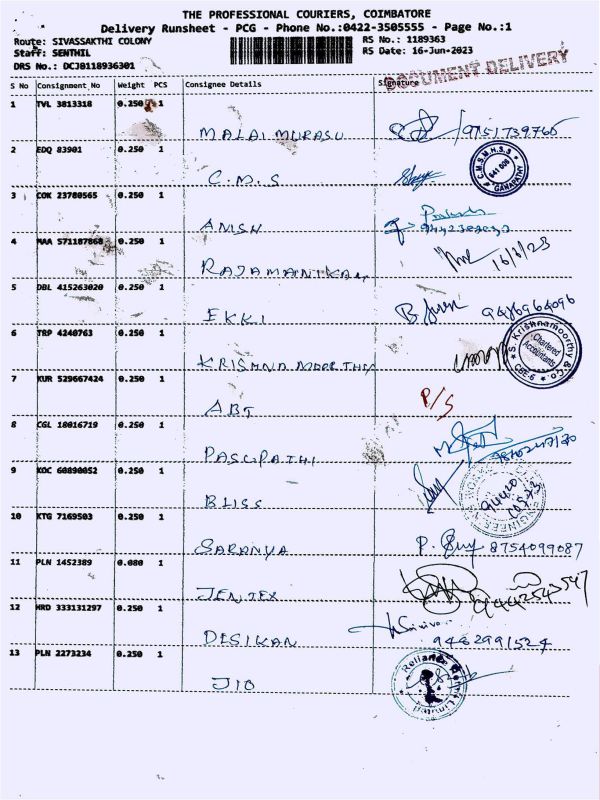 THE PROFESSIONAL COURIERS, COIMBATORE
Delivery Runsheet - PCG - Phone No.:0422-3505555 - Page No.:1
Route: SIVASSAKTHI COLONY
RS No.: 1189363
Staff: SENTHIL
RS Date: 16-Jun-2023
DRS No.: DCJ0118936301
DOCUMENT DELIVERY
S No Consignment_No Weight PCS Consignee Details Signature
1 TVL 3813318 0.250 1
MALAI MURASU 9751739765
2 EDQ 83901 0.250 1
C.M.S C.M.S.M.H.S.S 641 006 GANAPATHY
3 COK 23780565 0.250 1
ANISH
4 MAA 571187868 0.250 1
RAJAMANIKAM 16/6/23
5 DBL 415263020 0.250 1
EKKI 9486964096
6 TRP 4240763 0.250 1
KRISHNAMOORTHY S. Krishnamoorthy & Co. Chartered Accountants CBE-6
7 KUR 529667424 0.250 1
ABT P/S
8 CGL 18016719 0.250 1
PASUPATHI
9 KOC 60890052 0.250 1
BLISS 94440
10 KTG 7169503 0.250 1
SARANYA 8754099087
11 PLN 1452389 0.080 1
JENTEX
12 HRD 333131297 0.250 1
DESIKAN 9462991524
13 PLN 2273234 0.250 1
JIO Reliance